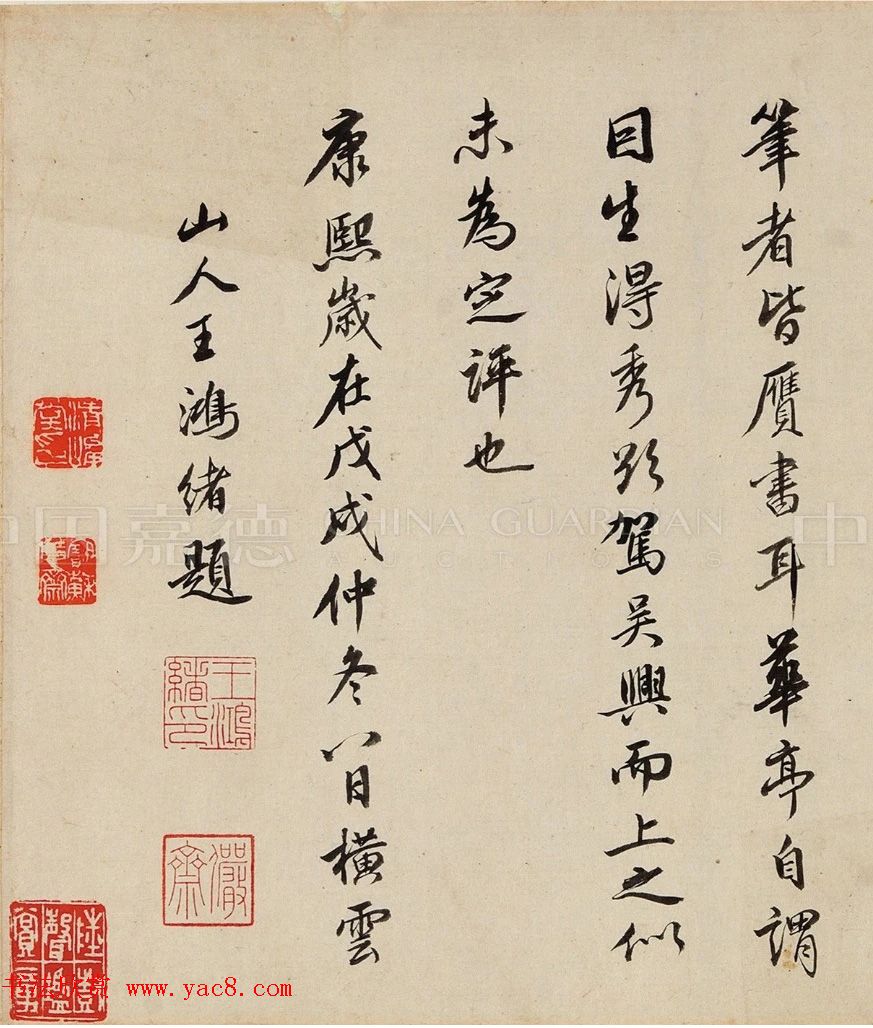 筆者皆贗書耳華亭自謂
因生得秀欲駕吳興而上之似
未為定評也
康熙歲在戊戌仲冬八日橫雲
山人王鴻緒題
王鴻緒印
儼齋
中国嘉德 CHINA GUARDIAN AUCTIONS 中
www.yac8.com